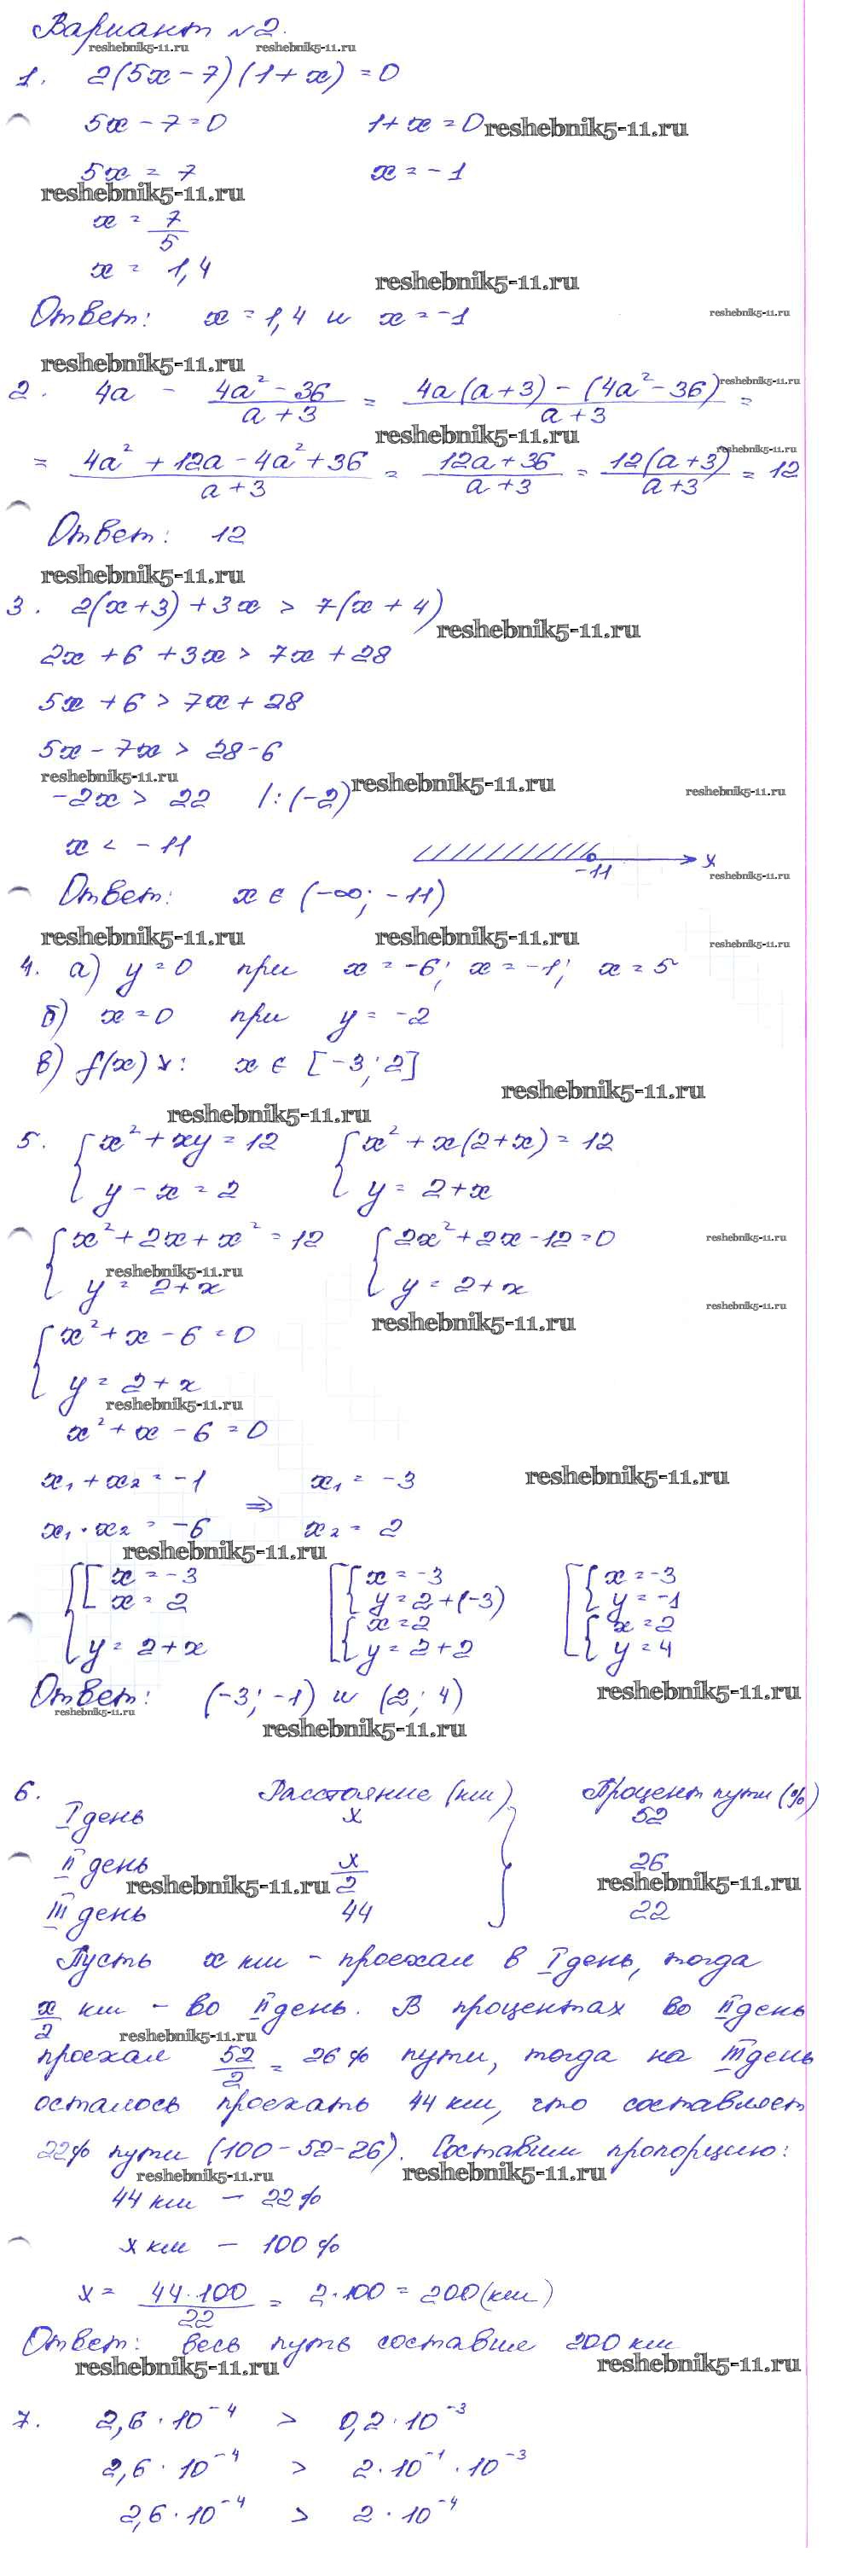 Вариант №2.
reshebnik5-11.ru reshebnik5-11.ru
1. 2(5x - 7)(1 + x) = 0
5x - 7 = 0 1 + x = 0 reshebnik5-11.ru
5x = 7 x = -1
reshebnik5-11.ru
x = 7/5
x = 1,4 reshebnik5-11.ru
Ответ: x = 1,4 и x = -1 reshebnik5-11.ru
reshebnik5-11.ru
2. 4a - (4a² - 36)/(a + 3) = (4a(a + 3) - (4a² - 36))/(a + 3) = reshebnik5-11.ru
reshebnik5-11.ru reshebnik5-11.ru
= (4a² + 12a - 4a² + 36)/(a + 3) = (12a + 36)/(a + 3) = 12(a + 3)/(a + 3) = 12
Ответ: 12
reshebnik5-11.ru
3. 2(x + 3) + 3x > 7(x + 4)
reshebnik5-11.ru
2x + 6 + 3x > 7x + 28
5x + 6 > 7x + 28
5x - 7x > 28 - 6
reshebnik5-11.ru reshebnik5-11.ru reshebnik5-11.ru
-2x > 22 | : (-2)
x < -11 -11 x
reshebnik5-11.ru
Ответ: x ∈ (-∞; -11)
reshebnik5-11.ru reshebnik5-11.ru reshebnik5-11.ru
4. а) y = 0 при x = -6; x = -1; x = 5
б) x = 0 при y = -2
в) f(x) ↘: x ∈ [-3; 2]
reshebnik5-11.ru
reshebnik5-11.ru
5. { x² + xy = 12 { x² + x(2 + x) = 12
y - x = 2 y = 2 + x
{ x² + 2x + x² = 12 { 2x² + 2x - 12 = 0 reshebnik5-11.ru
reshebnik5-11.ru
y = 2 + x y = 2 + x
reshebnik5-11.ru reshebnik5-11.ru
{ x² + x - 6 = 0
y = 2 + x
reshebnik5-11.ru
x² + x - 6 = 0
x₁ + x₂ = -1 ⇒ x₁ = -3 reshebnik5-11.ru
x₁ · x₂ = -6 x₂ = 2
reshebnik5-11.ru
{ [ x = -3 [ { x = -3 [ { x = -3
x = 2 y = 2 + (-3) y = -1
{ x = 2 { x = 2
y = 2 + x y = 2 + 2 y = 4
Ответ: (-3; -1) и (2; 4) reshebnik5-11.ru
reshebnik5-11.ru reshebnik5-11.ru
6. Расстояние (км) Процент пути (%)
I день x 52
II день x/2 26
reshebnik5-11.ru reshebnik5-11.ru
III день 44 22
Пусть x км - проехал в I день, тогда
x/2 км - во II день. В процентах во II день
reshebnik5-11.ru
проехал 52/2 = 26% пути, тогда на III день
осталось проехать 44 км, что составляет
22% пути (100 - 52 - 26). Составим пропорцию:
reshebnik5-11.ru reshebnik5-11.ru
44 км - 22%
x км - 100%
x = 44 · 100/22 = 2 · 100 = 200 (км)
Ответ: весь путь составил 200 км
reshebnik5-11.ru reshebnik5-11.ru
7. 2,6 · 10⁻⁴ > 0,2 · 10⁻³
2,6 · 10⁻⁴ > 2 · 10⁻¹ · 10⁻³
2,6 · 10⁻⁴ > 2 · 10⁻⁴